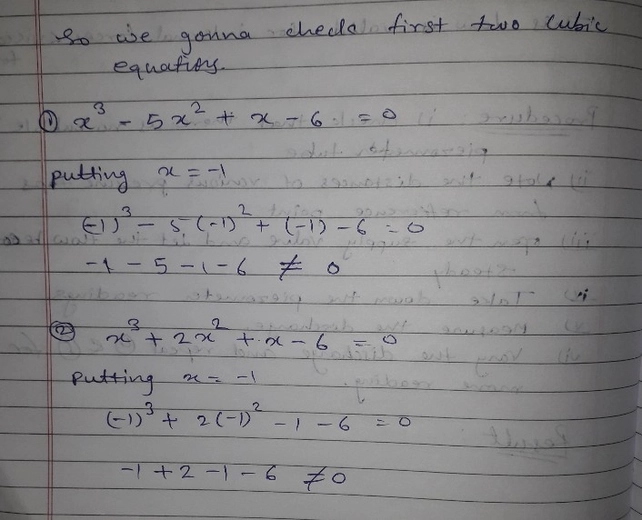 So we gonna check first two cubic
equations.
① x³ - 5x² + x - 6 = 0
putting x = -1
(-1)³ - 5(-1)² + (-1) - 6 = 0
-1 - 5 - 1 - 6 ≠ 0
② x³ + 2x² + x - 6 = 0
putting x = -1
(-1)³ + 2(-1)² - 1 - 6 = 0
-1 + 2 - 1 - 6 ≠ 0